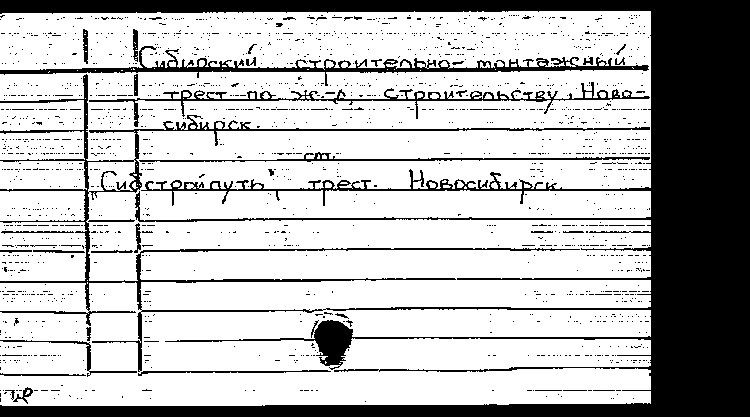 Сибирский строительно-монтажный
трест по ж-д. строительству, Ново-
сибирск.
см.
„Сибстройпуть", трест. Новосибирск.